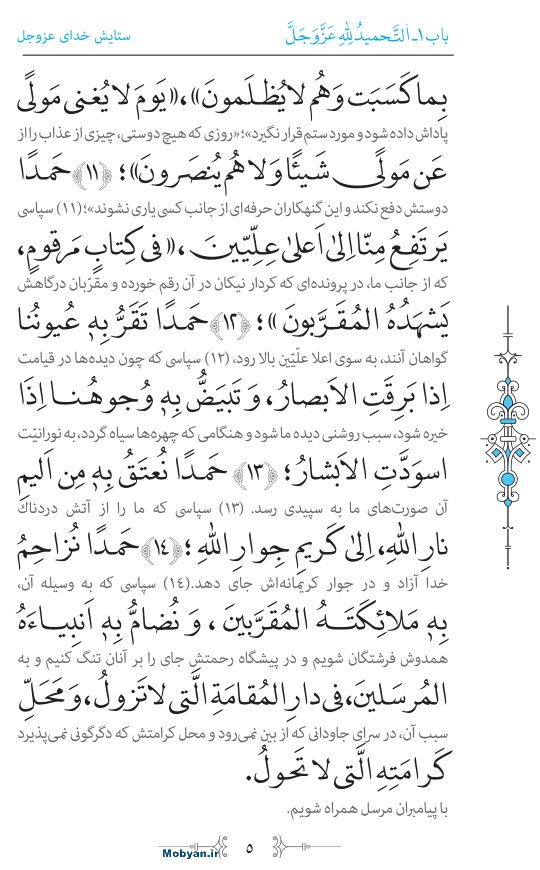 باب ۱ـ اَلتَّحمیدُ لِلّٰهِ عَزَّوَجَلَّ
ستایش خدای عزوجل
بِما كَسَبَت وَهُم لا يُظلَمونَ»، «يَومَ لا يُغنی مَولًی
پاداش داده شود و مورد ستم قرار نگیرد»؛ «روزی که هیچ دوستی، چیزی از عذاب را از
عَن مَولًی شَيئًا وَلا هُم يُنصَرونَ»؛ ﴿۱۱﴾ حَمدًا
دوستش دفع نکند و این گنهکاران حرفه‌ای از جانب کسی یاری نشوند»؛ (۱۱) سپاسی
يَرتَفِعُ مِنّا اِلیٰ اَعلیٰ عِلِيّينَ، «فی كِتابٍ مَرقومٍ،
که از جانب ما، در پرونده‌ای که کردار نیکان در آن رقم خورده و مقرّبان درگاهش
يَشهَدُهُ المُقَرَّبونَ»؛ ﴿۱۲﴾ حَمدًا تَقَرُّ بِهٖ عُيونُنا
گواهان آنند، به سوی اعلا علّیّین بالا رود، (۱۲) سپاسی که چون دیده‌ها در قیامت
اِذا بَرِقَتِ الاَبصارُ، وَ تَبيَضُّ بِهٖ وُجوهُنا اِذَا
خیره شود، سبب روشنی دیده ما شود و هنگامی که چهره‌ها سیاه گردد، به نورانیّت
اسوَدَّتِ الاَبشارُ؛ ﴿۱۳﴾ حَمدًا نُعتَقُ بِهٖ مِن اَليمِ
آن صورت‌های ما به سپیدی رسد. (۱۳) سپاسی که ما را از آتش دردناك
نارِ اللّٰهِ، اِلیٰ كَريمِ جِوارِ اللّٰهِ؛ ﴿۱۴﴾ حَمدًا نُزاحِمُ
خدا آزاد و در جوار کریمانه‌اش جای دهد. (۱۴) سپاسی که به وسیله آن،
بِهٖ مَلائِكَتَهُ المُقَرَّبينَ، وَ نُضامُّ بِهٖ اَنبِياءَهُ
همدوش فرشتگان شویم و در پیشگاه رحمتش جای را بر آنان تنگ کنیم و به
المُرسَلينَ، فی دارِ المُقامَةِ الَّتی لا تَزولُ، وَ مَحَلِّ
سبب آن، در سرای جاودانی که از بین نمی‌رود و محل کرامتش که دگرگونی نمی‌پذیرد
كَرامَتِهِ الَّتی لا تَحولُ.
با پیامبران مرسل همراه شویم.
۵
Mobyan.ir